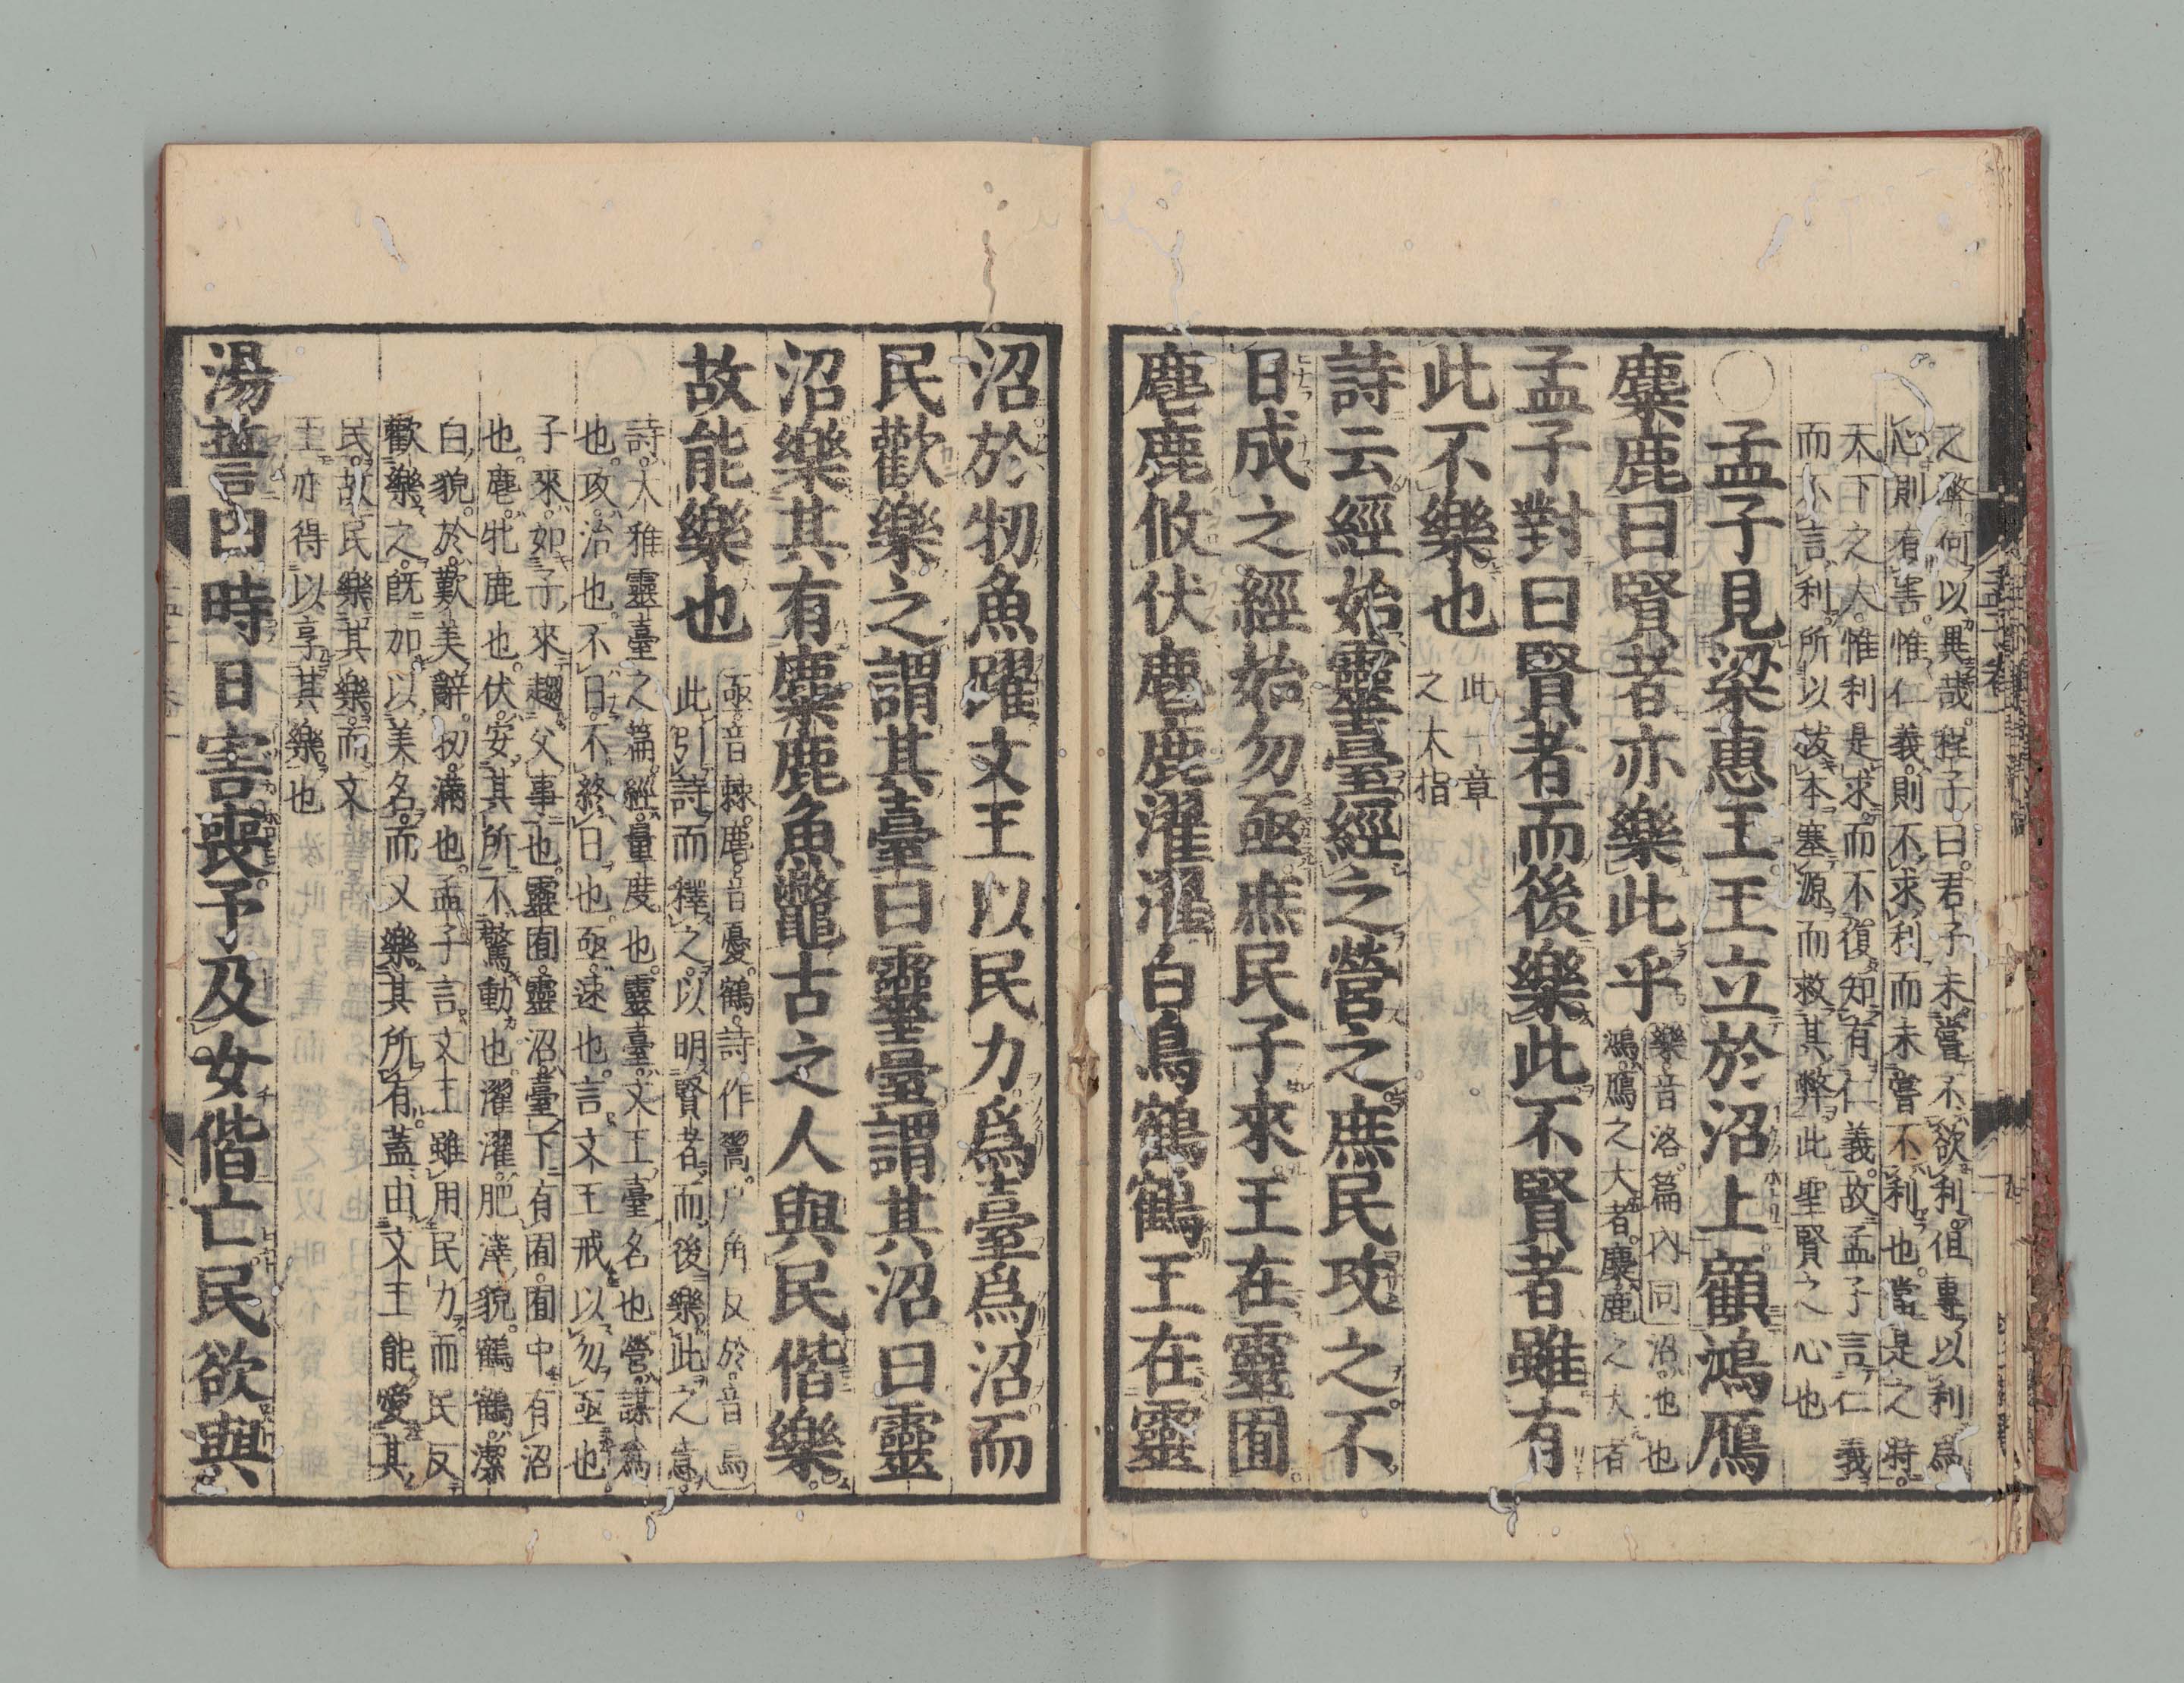 之弊何以異哉程子曰君子未嘗不欲利但專以利爲
心則有害惟仁義則不求利而未嘗不利也當是之時
天下之人惟利是求而不復知有仁義故孟子言仁義
而不言利所以拔本塞源而救其弊此聖賢之心也
○孟子見梁惠王王立於沼上顧鴻鴈
麋鹿曰賢者亦樂此乎
樂音洛篇內同沼池也
鴻鴈之大者麋鹿之大者
孟子對曰賢者而後樂此不賢者雖有
此不樂也
此一章
之大指
詩云經始靈臺經之營之庶民攻之不
日成之經始勿亟庶民子來王在靈囿
麀鹿攸伏麀鹿濯濯白鳥鶴鶴王在靈
沼於牣魚躍文王以民力爲臺爲沼而
民歡樂之謂其臺曰靈臺謂其沼曰靈
沼樂其有麋鹿魚鼈古之人與民偕樂
故能樂也
亟音棘麀音憂鶴詩作翯戶角反於音烏
此引詩而釋之以明賢者而後樂此之意
詩大雅靈臺之篇經量度也靈臺文王臺名也營謀爲
也攻治也不日不終日也亟速也言文王戒以勿亟也
子來如子來趨父事也靈囿靈沼臺下有囿囿中有沼
也麀牝鹿也伏安其所不驚動也濯濯肥澤貌鶴鶴潔
白貌於歎美辭牣滿也孟子言文王雖用民力而民反
歡樂之既加以美名而又樂其所有蓋由文王能愛其
民故民樂其樂而文
王亦得以享其樂也
湯誓曰時日害喪予及女偕亡民欲與